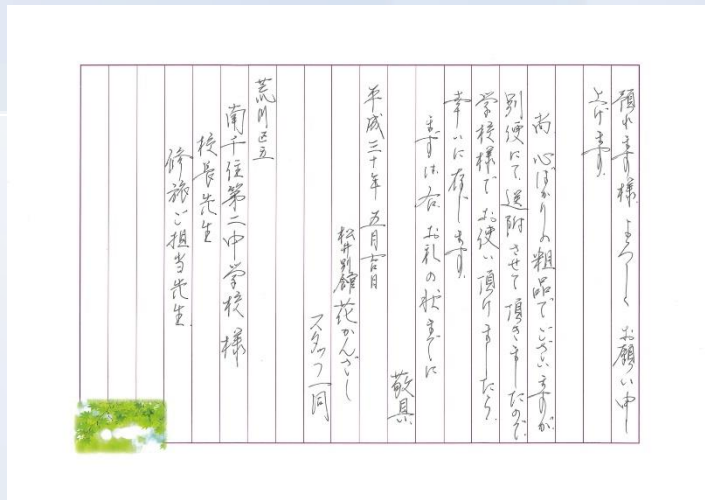 預れます様、よろしくお願い申し
上げます。
尚、心ばかりの粗品でございますが、
別便にて、送附させて頂きましたので、
学校様で、お使い頂けましたら、
幸いに存じます。
まずは、右、お礼の状までに
敬具
平成三十年 五月吉日
松井別館 花かんざし
スタッフ一同
荒川区立
南千住第二中学校 様
校長先生
修旅ご担当先生